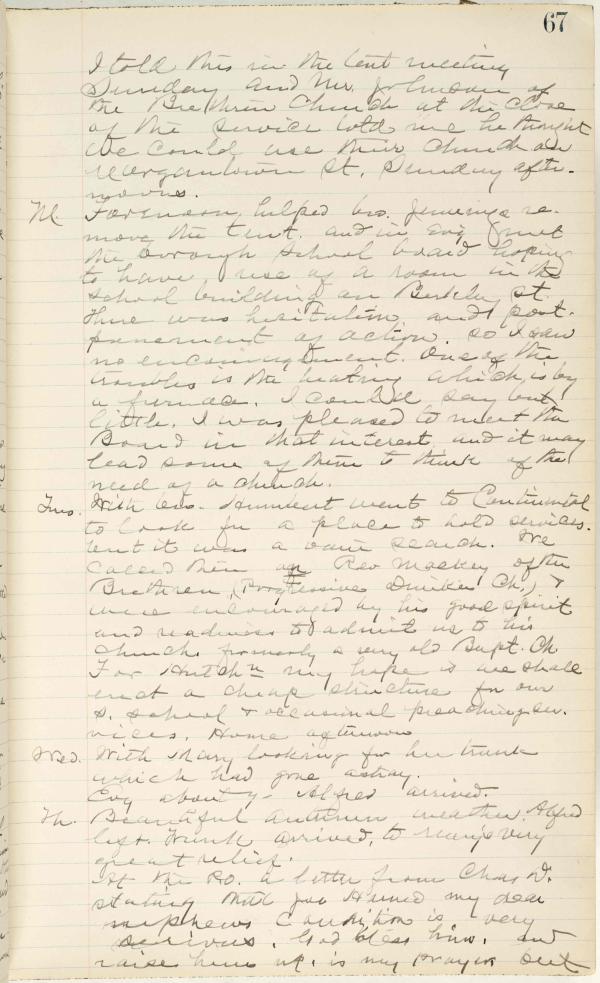 67
I told this in the tent meeting
Sunday and Mr. Johnson of
the Brethren Church at the close
of the service told me he thought
we could use their church on
Morgantown St. Sunday after-
noons.
M. Forenoon helped bro. Jennings re-
move the tent. and in Evg met
the borough school board hoping
to have use of a room in the
school building on Berkley St.
There was hesitation and post-
ponement of action. so I saw
no encouragement. One of the
troubles is the heating which is by
a furnace. I could say but
little. I was pleased to meet the
Board in that interest and it may
lead some of them to think of the
need of a church.
Tues. With bro. Humbert went to Continental
to look for a place to hold services.
but it was a vain search. We
called then on Rev Mackey of the
Brethren, (Progressive Dunker Ch.) &
were encouraged by his good spirit
and readiness to admit us to his
church, formerly a very old Bapt. Ch
For Hutchn my hope is we shall
erect a cheap structure for our
S. School & occasional preaching ser-
vices. Home afternoon
Wed. With Mary looking for her trunk
which had gone astray.
Evg about 7- Alfred arrived.
Th. Beautiful autumn weather. Alfred
left. Trunk arrived, to very
great relief.
At the P.O. a letter from Chas D.
stating that my dear
nephews condition is very
serious. God bless him, and
raise him up, is my prayer. But